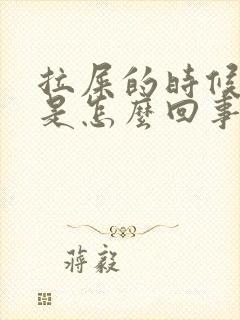 拉屎的時候
是怎麼回事
蔣毅